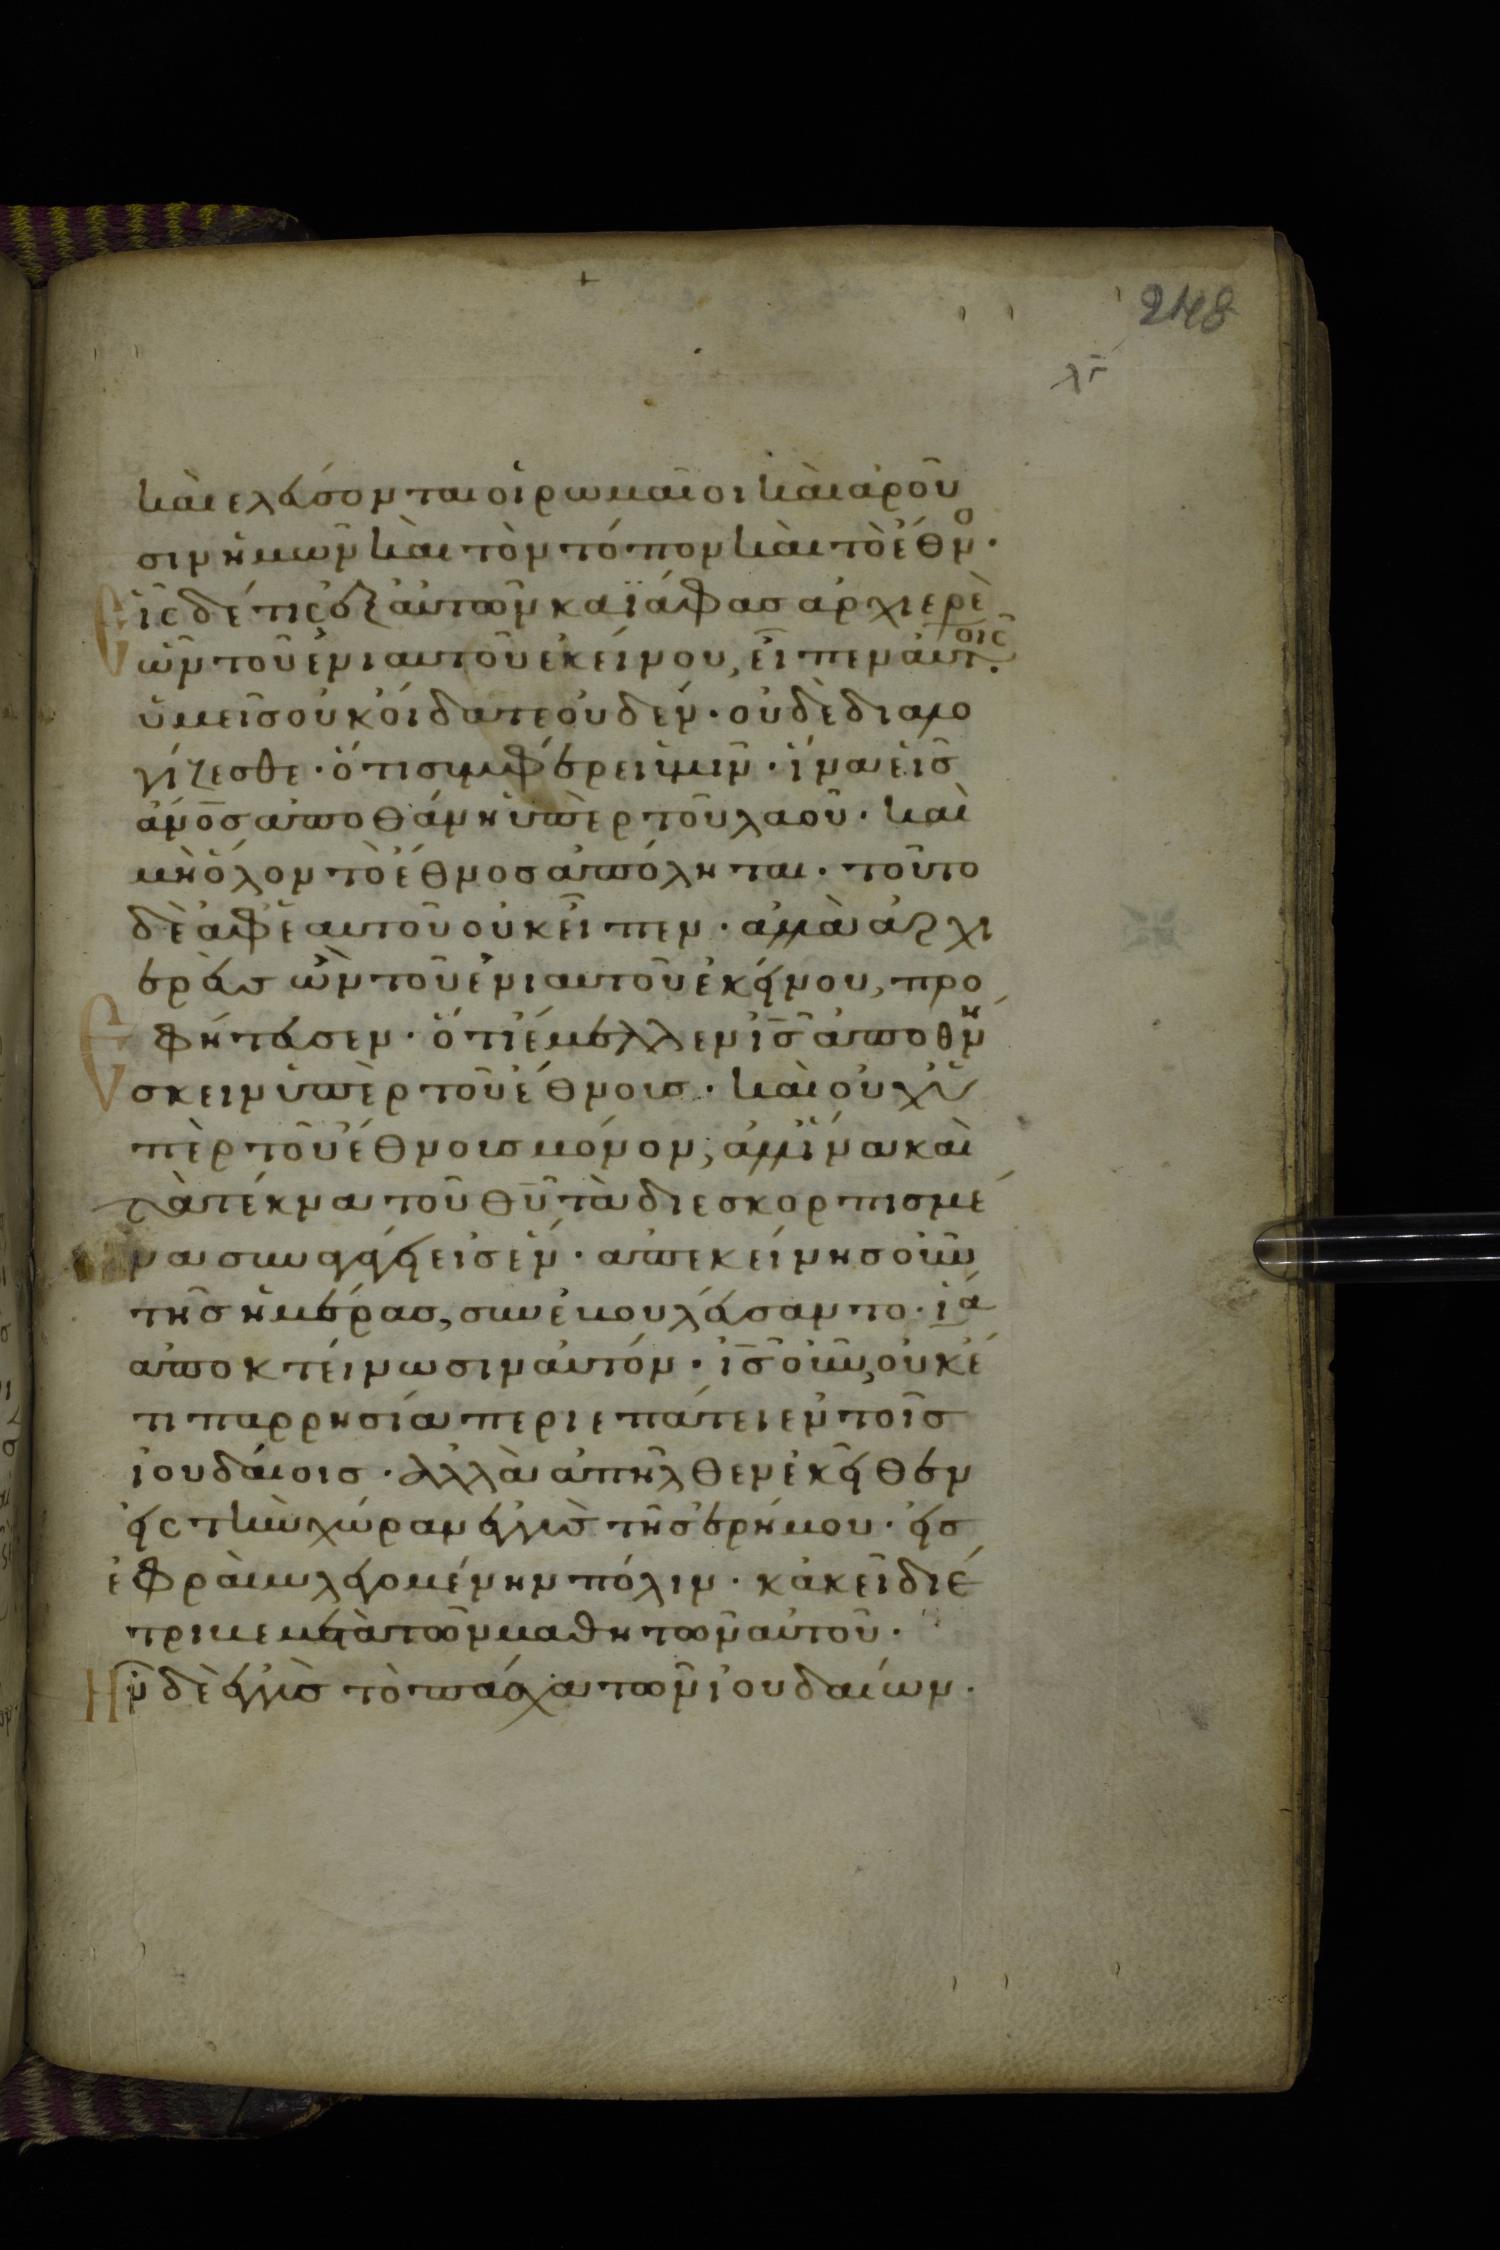 248
λγ
καὶ ἐλέυσονται οἱ ρωμαῖοι καὶ ἀροῦ
σιν ἡμῶν καὶ τὸν τόπον καὶ τὸ ἔθνο·
Εἷς δέ τις ἐξ αὐτῶν καϊάφας ἀρχιερὲ
ὼν τοῦ ἐνιαυτοῦ ἐκείνου, εἶπεν αὐτοῖς·
ὑμεῖς οὐκ ὄιδατε οὐδέν· οὐδὲ διαλο
γίζεσθε· ὅτι συμφέρει ἡμῖν· ἵνα εἷς
ἄνος ἀποθάνη ὑπὲρ τοῦ λαοῦ· καὶ
μὴ ὅλον τὸ ἔθνος ἀπόληται· τοῦτο
δὲ ἀφ' ἑαυτοῦ οὐκ εἶπεν· ἀλλὰ ἀρχι
ερεὺς ὢν τοῦ ἐνιαυτοῦ ἐκείνου, προ
Εφήτευσεν· ὅτι ἔμελλεν ις ἀποθνή
σκειν ὑπὲρ τοῦ ἔθνους· καὶ οὐχ ὑ
πὲρ τοῦ ἔθνους μόνον, ἀλλ' ἵνα καὶ
τὰ τέκνα τοῦ θυ τὰ διεσκορπισμέ
να συναγάγη εἰς ἕν· ἀπ' ἐκείνης οὖν
τῆς ἡμέρας, συνεβουλέυσαντο· ἵνα
ἀποκτείνωσιν αὐτόν· ις οὖν, οὐκέ
τι παρρησία περιεπάτει ἐν τοῖς
ἰουδαίοις· ἀλλὰ ἀπῆλθεν ἐκεῖθεν
εἰς τὴν χώραν ἐγγὺς τῆς ἐρήμου· εἰς
ἐφραὶμ λεγομένην πόλιν· κἀκεῖ διέ
τριβε μετὰ τῶν μαθητῶν αὐτοῦ·
Ην δὲ ἐγγὺς τὸ πάσχα τῶν ἰουδαίων·